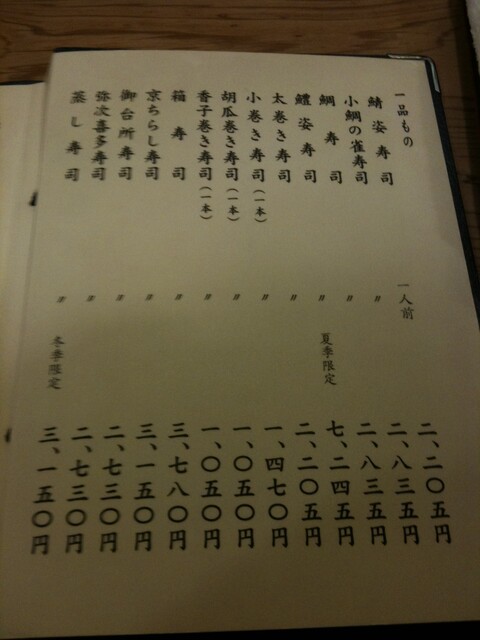 一品もの
鯖姿寿司 一人前 二、二〇五円
小鯛の雀寿司 〃 二、八三五円
鯛寿司 〃 二、八三五円
鱧姿寿司 〃 夏季限定 七、二四五円
太巻き寿司 〃 二、二〇五円
小巻き寿司(一本) 〃 一、四七〇円
胡瓜巻き寿司(一本) 〃 一、〇五〇円
香子巻き寿司(一本) 〃 一、〇五〇円
箱寿司 〃 三、七八〇円
京ちらし寿司 〃 三、一五〇円
御台所寿司 〃 二、七三〇円
弥次喜多寿司 〃 二、七三〇円
蒸し寿司 〃 冬季限定 三、一五〇円